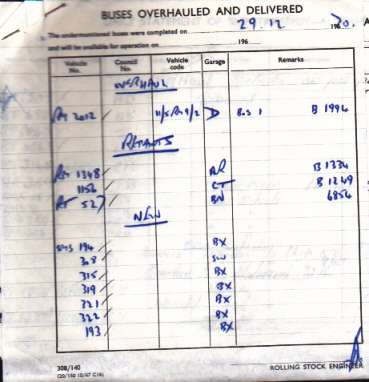 BUSES OVERHAULED AND DELIVERED
The undermentioned buses were completed on 29.12 1970.
and will be available for operation on 196
Vehicle No. Council No. Vehicle code Garage Remarks
OVERHAUL
RT 2012 11/5 Rt 9/2 D BOS 1 B 1994
REPAINTS
RT 1348 AR B 1334
1156 CT B 1249
RT 527 BN 6854
NEW
SMS 194 BX
308 SW
315 BX
319 BX
321 BX
322 BX
193 BX
308/140
ROLLING STOCK ENGINEER